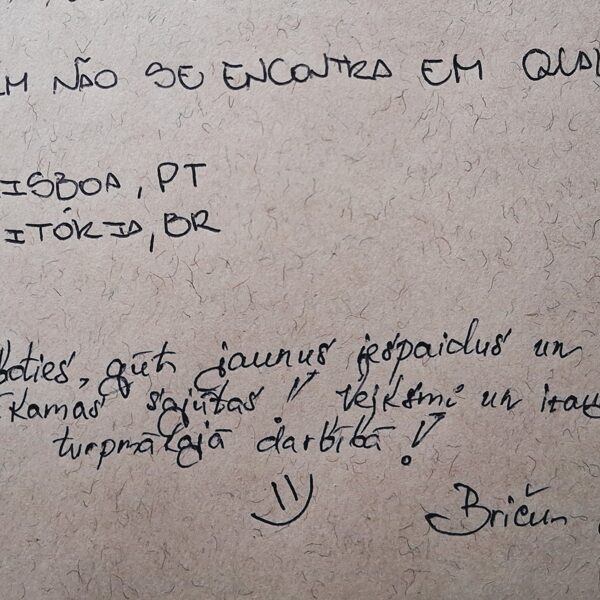 EM NÃO SE ENCONTRA EM QUAL
LISBOA, PT
VITÓRIA, BR
boties, gūt jaunus iespaidus un
kamas sajūtas! Veiksmi un izau
turpmākajā darbībā!
Bričun